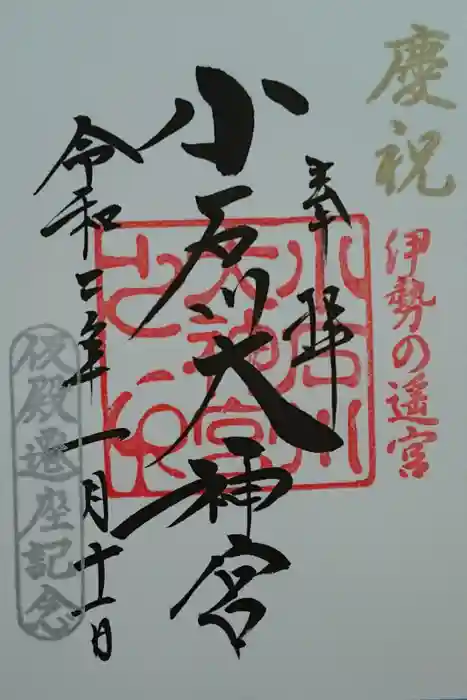 慶祝
伊勢の遥宮
奉拝
小石川大神宮
小石川大神宮
令和二年一月十一日
仮殿遷座記念